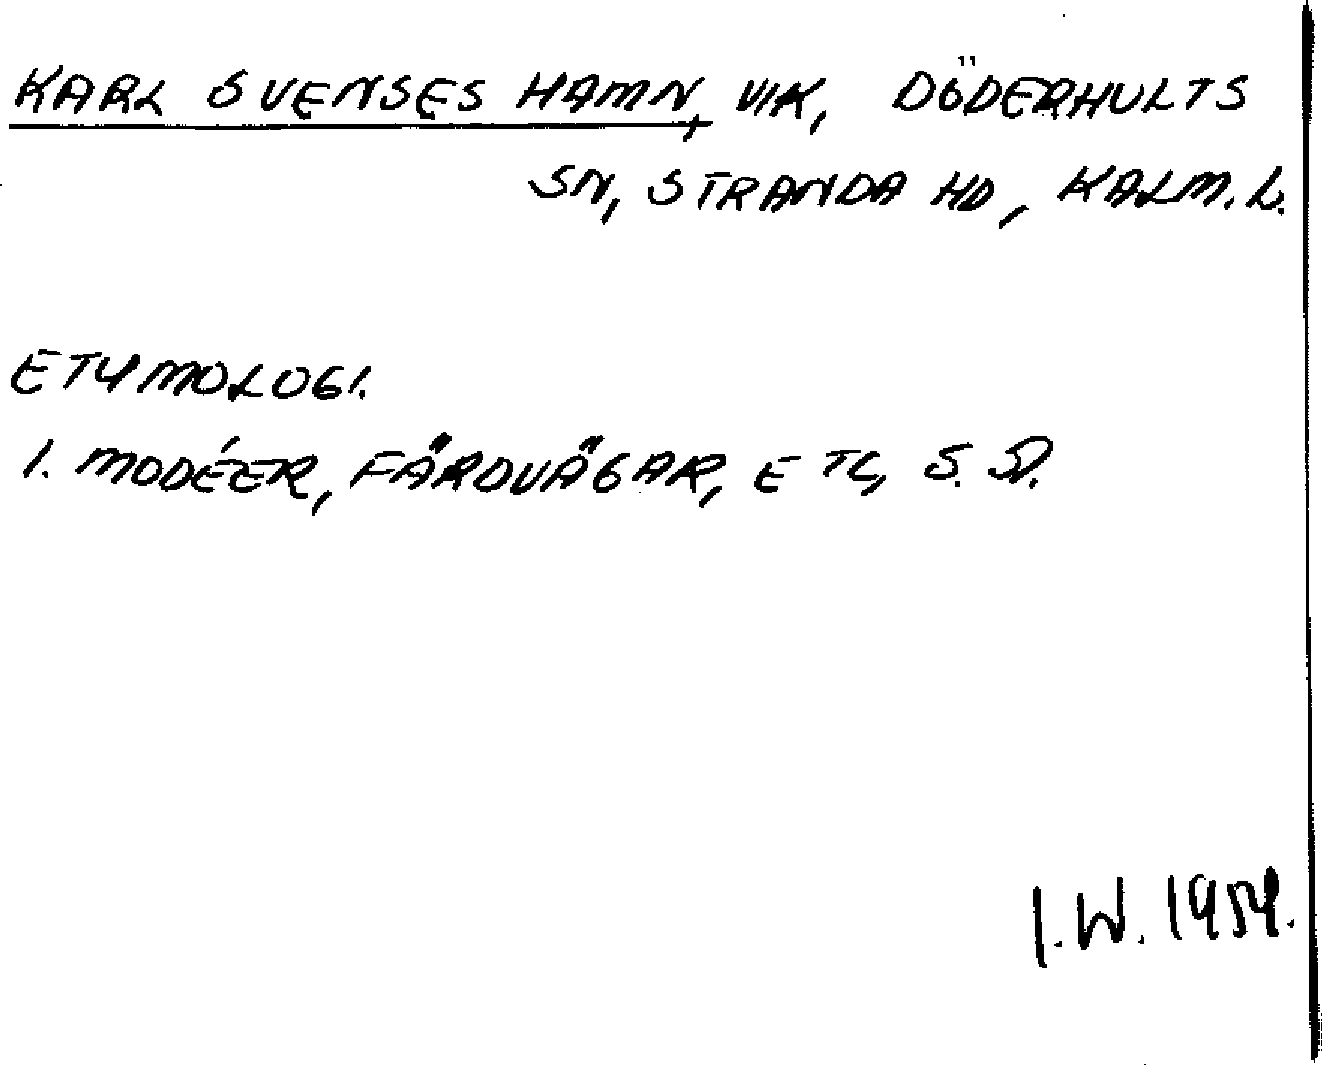 KARL SVENSES HAMN, VIK, DÖDERHULTS
SN, STRANDA HD, KALM. L.
ETYMOLOGI.
1. MODÉER, FÄRDVÄGAR, ETC, S.
I.W. 1954.